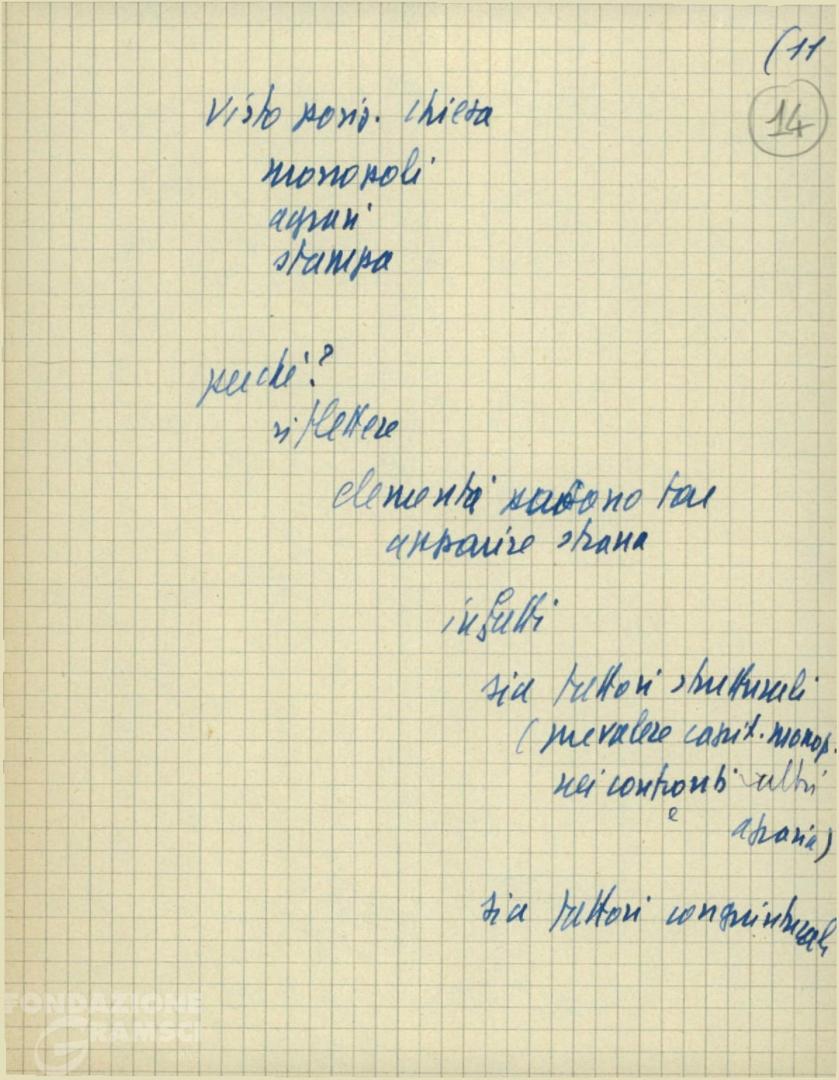 (11
14
visto posiz. chiesa
monopoli
agrari
stampa
perché?
riflettere
elementi possono far
apparire strana
infatti
sia fattori strutturali
(prevalere capit. monop.
nei confronti altri
e agraria)
sia fattori congiunturali
FONDAZIONE
GRAMSCI